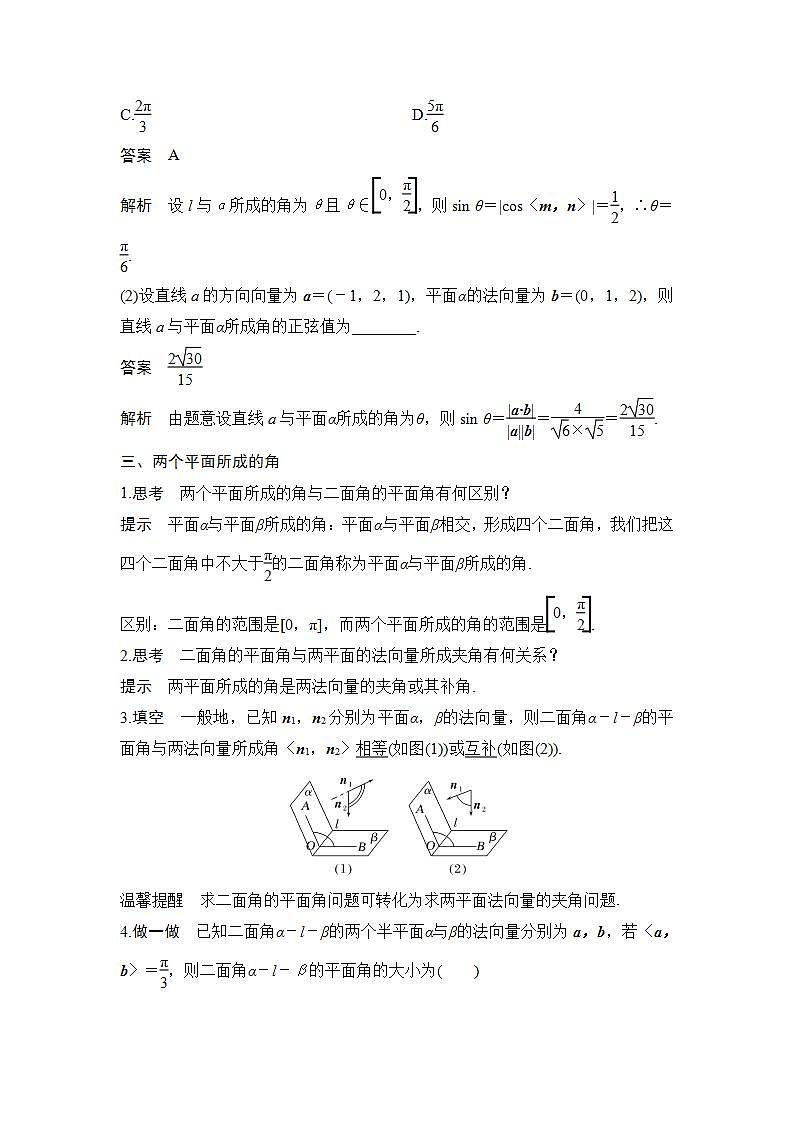 C.2π/3 D.5π/6
答案 A
解析 设 l 与 α 所成的角为 θ 且 θ∈[0，π/2]，则 sin θ＝|cos〈m，n〉|＝1/2，∴θ＝
π/6.
(2)设直线 a 的方向向量为 a＝(－1，2，1)，平面α的法向量为 b＝(0，1，2)，则
直线 a 与平面α所成角的正弦值为________.
答案 2√30/15
解析 由题意设直线 a 与平面α所成的角为θ，则 sin θ＝|a·b|/|a||b|＝4/√6×√5＝2√30/15.
三、两个平面所成的角
1.思考 两个平面所成的角与二面角的平面角有何区别？
提示 平面α与平面β所成的角：平面α与平面β相交，形成四个二面角，我们把这
四个二面角中不大于π/2的二面角称为平面α与平面β所成的角.
区别：二面角的范围是[0，π]，而两个平面所成的角的范围是[0，π/2].
2.思考 二面角的平面角与两平面的法向量所成夹角有何关系？
提示 两平面所成的角是两法向量的夹角或其补角.
3.填空 一般地，已知 n₁，n₂ 分别为平面α，β的法向量，则二面角α－l－β的平
面角与两法向量所成角〈n₁，n₂〉相等(如图(1))或互补(如图(2)).
α A n₁ n₂ l O B β
(1)
α A n₁ n₂ l O B β
(2)
温馨提醒 求二面角的平面角问题可转化为求两平面法向量的夹角问题.
4.做一做 已知二面角α－l－β的两个半平面α与β的法向量分别为 a，b，若〈a，
b〉＝π/3，则二面角α－l－β的平面角的大小为( )